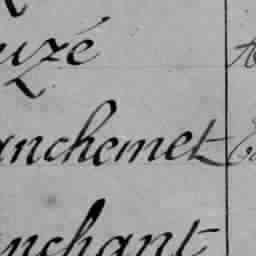 uzé
nchemet
nchant